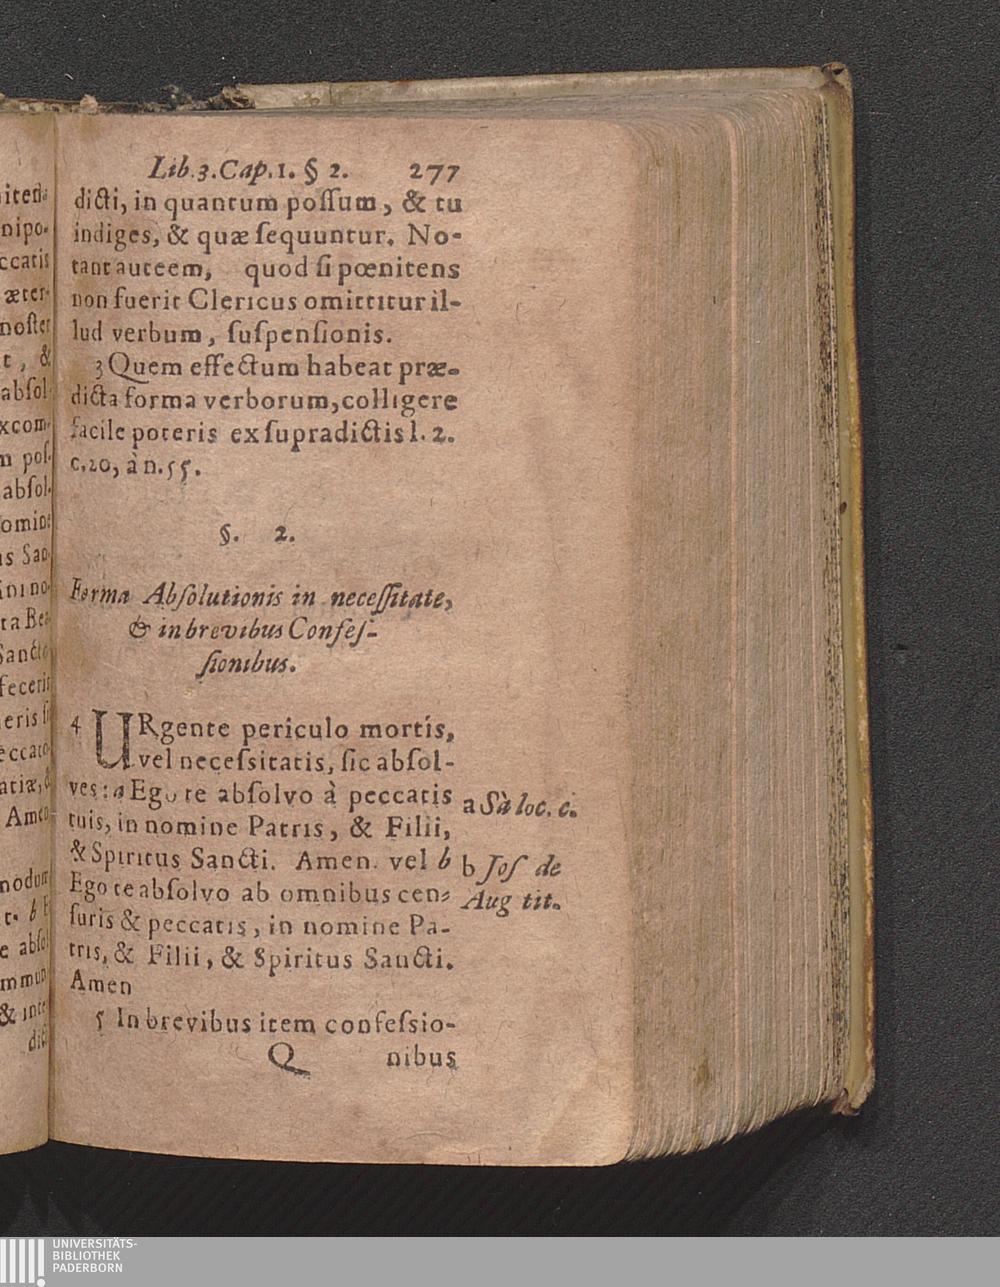 Lib.3.Cap.1. § 2. 277
dicti, in quantum poſſum, & tu
indiges, & quæ ſequuntur. No-
tant auteem, quod ſi pœnitens
non fuerit Clericus omittitur il-
lud verbum, ſuſpenſionis.
3 Quem effectum habeat præ-
dicta forma verborum, colligere
facile poteris ex ſupradictis l. 2.
c.20, à n.55.
§. 2.
Forma Abſolutionis in neceſſitate,
& in brevibus Confeſ-
ſionibus.
4 URgente periculo mortis,
vel neceſsitatis, ſic abſol-
ves: a Ego te abſolvo à peccatis
tuis, in nomine Patris, & Filii,
& Spiritus Sancti. Amen. vel b
Ego te abſolvo ab omnibus cen-
ſuris & peccatis, in nomine Pa-
tris, & Filii, & Spiritus Sancti.
Amen
5 In brevibus item confeſsio-
Q nibus
a Sà loc. c.
b Joſ de
Aug tit.
nipo-
ccatis
æter-
noſter
t, &
abſol-
xcom-
m poſ-
abſol-
nomine
us San-
ta Be-
Sancto
fecerit
peccato-
Amen-
t. b E
& inte
dicti
UNIVERSITÄTS-
BIBLIOTHEK
PADERBORN